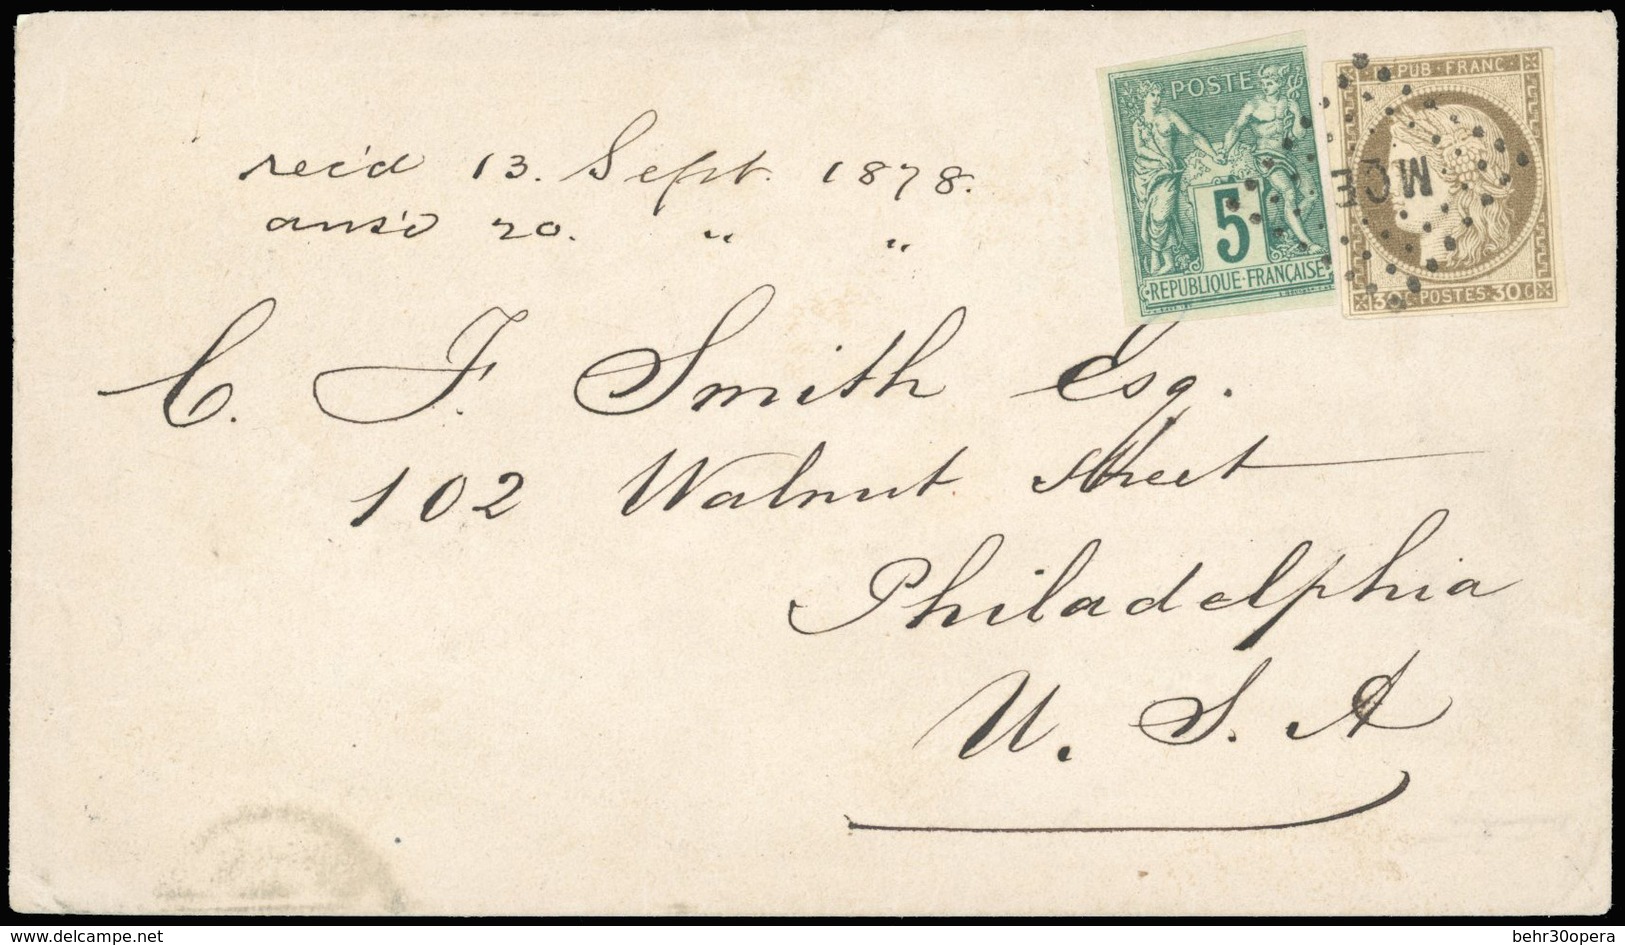 rec'd 13. Sept. 1878.
ans'd 20. " "
POSTE
5
REPUBLIQUE·FRANÇAISE
REPUB·FRANC·
MQE
30 C·POSTES·30 C
C. F. Smith Esq.
102 Walnut Street
Philadelphia
U. S. A
www.delcampe.net
behr30opera